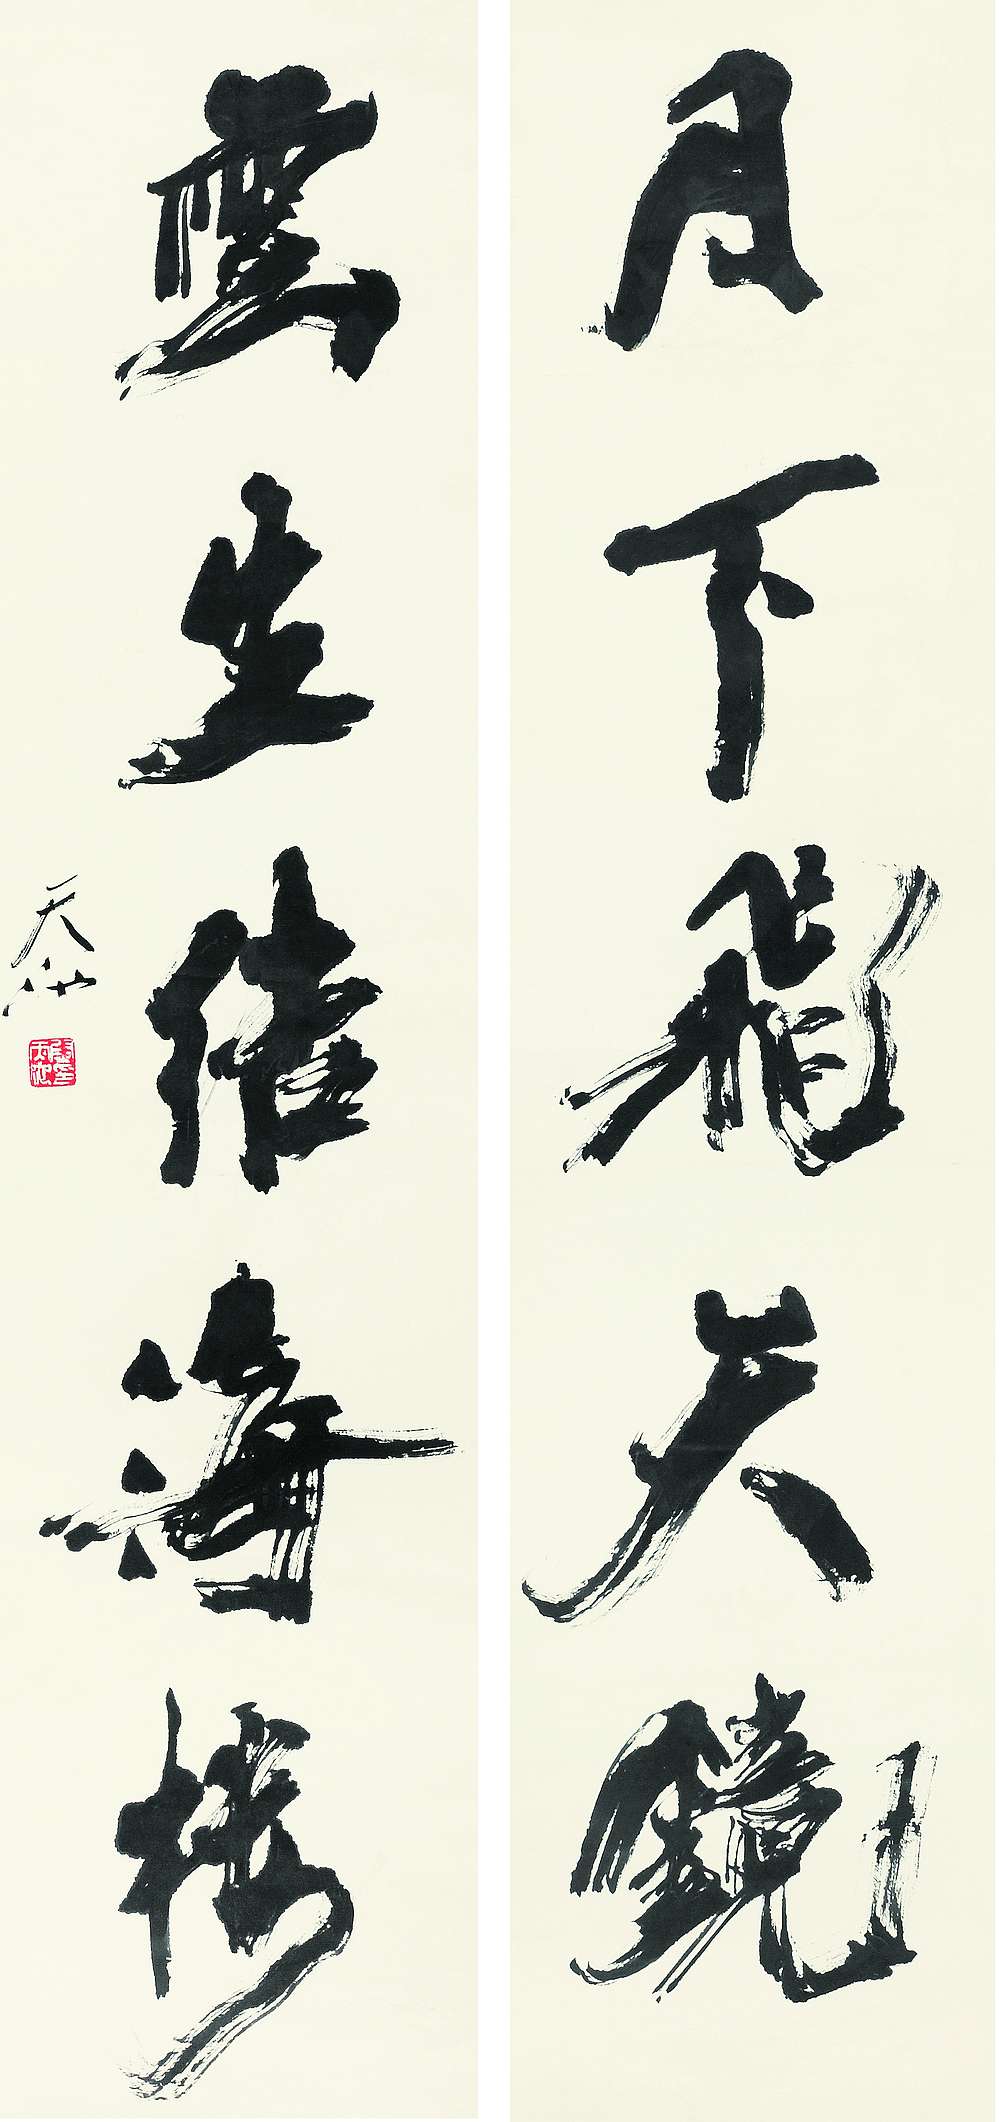 月下飛天鏡
雲生結海樓
天池